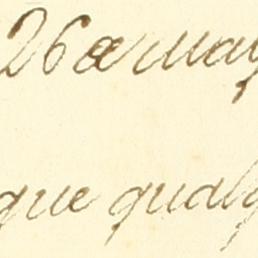 26 de may
que qualq